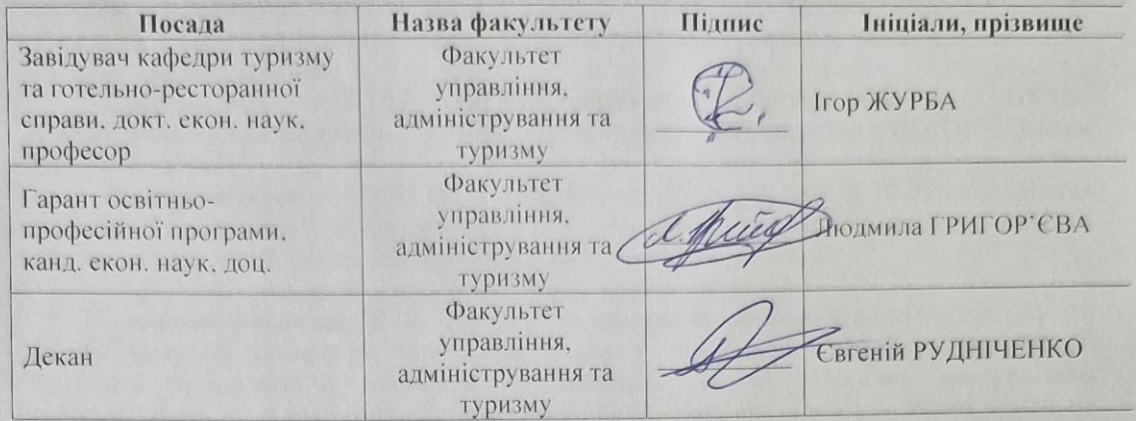 Посада Назва факультету Підпис Ініціали, прізвище
Завідувач кафедри туризму
та готельно-ресторанної
справи, докт. екон. наук,
професор
Факультет
управління,
адміністрування та
туризму
Ігор ЖУРБА
Гарант освітньо-
професійної програми,
канд. екон. наук, доц.
Факультет
управління,
адміністрування та
туризму
Людмила ГРИГОР’ЄВА
Декан
Факультет
управління,
адміністрування та
туризму
Євгеній РУДНІЧЕНКО